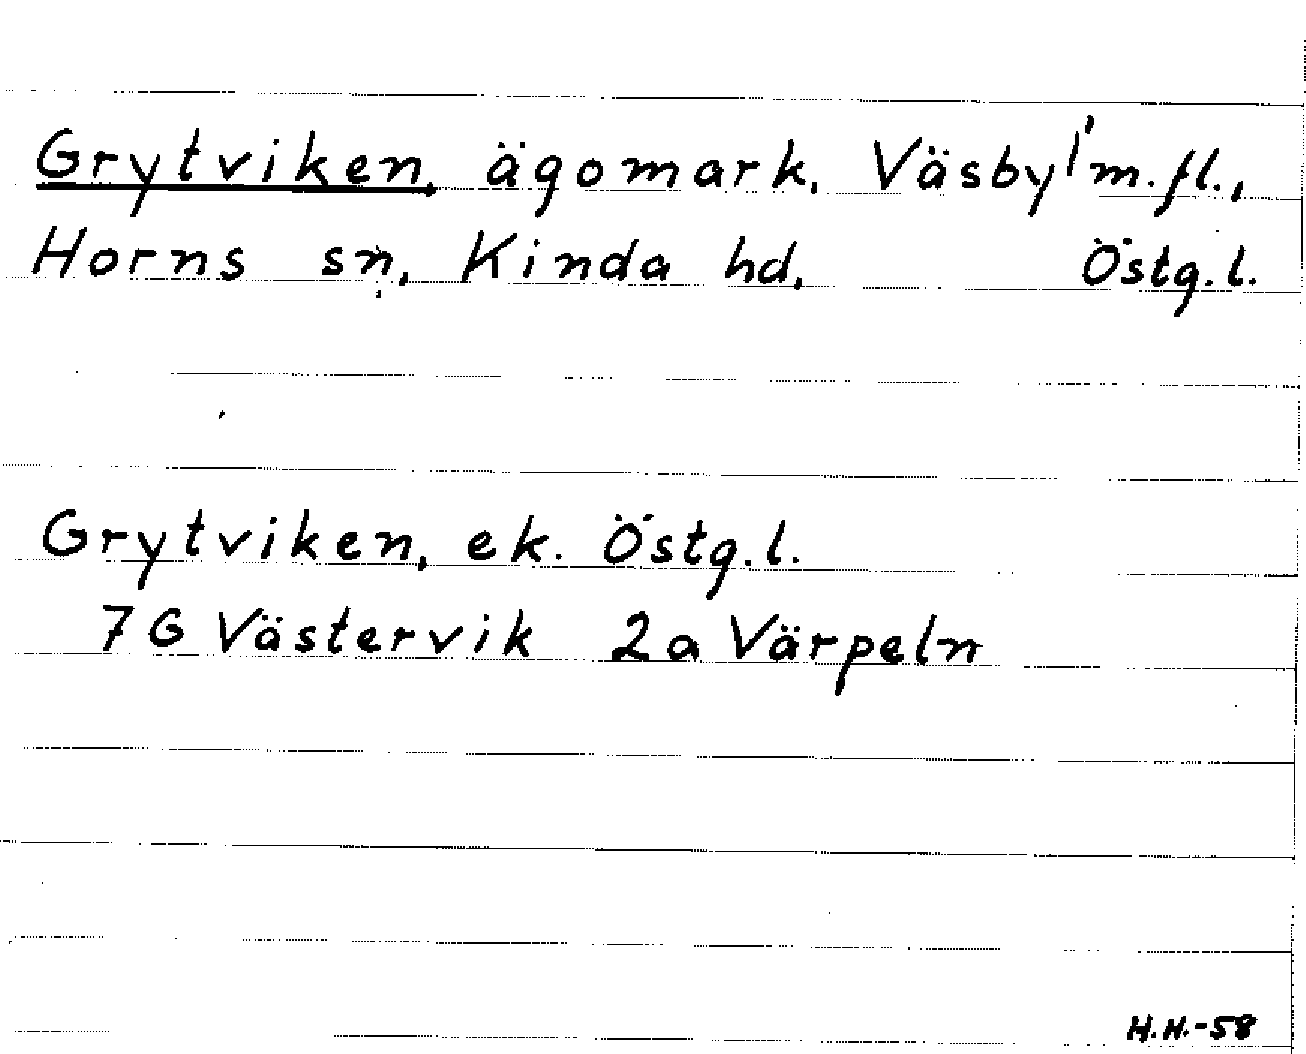 Grytviken, ägomark, Väsby 1' m.fl.,
Horns sn, Kinda hd, Östg.l.
Grytviken, ek. Östg.l.
7G Västervik 2a Värpeln
H.H.-58